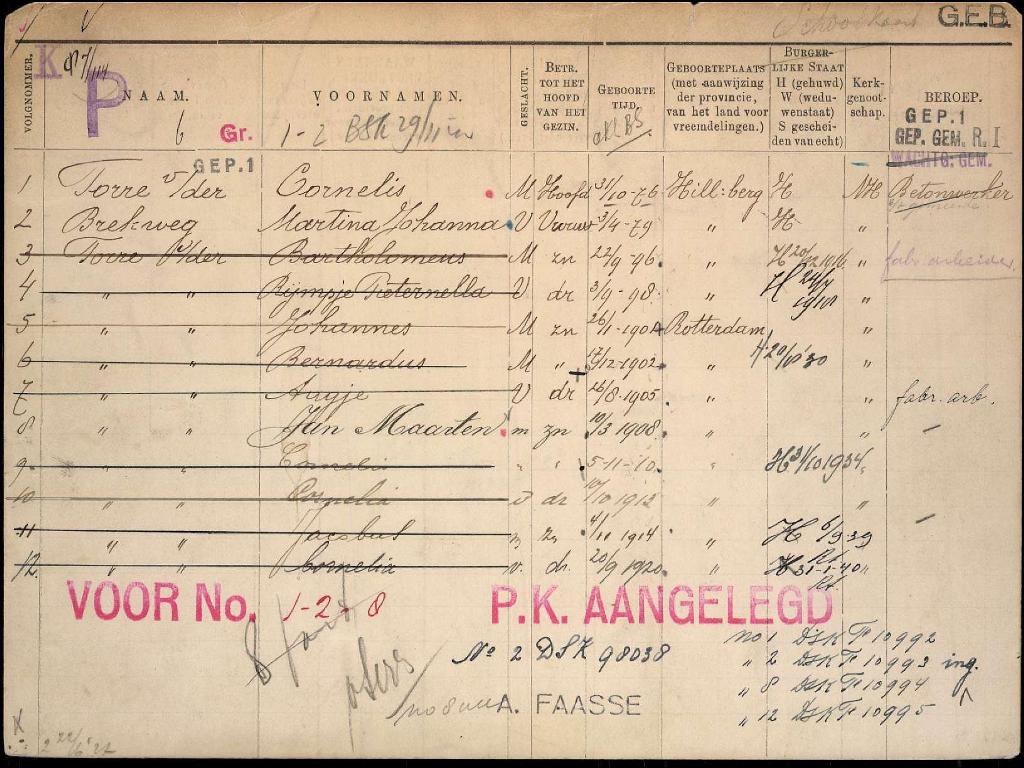 Schoolkaart G.E.B.
K
P
VOLGNOMMER.
NAAM.
6 Gr.
GEP.1
VOORNAMEN.
1-2 BSK 29/11
GESLACHT.
BETR. TOT HET HOOFD VAN HET GEZIN.
GEBOORTE TIJD.
GEBOORTEPLAATS (met aanwijzing der provincie, van het land voor vreemdelingen.)
BURGERLIJKE STAAT H (gehuwd) W (weduwenstaat) S gescheiden van echt)
Kerkgenootschap.
BEROEP.
GEP.1
GEP. GEM. R. I
WACHTG. GEM.
1 Torre v/der Cornelis M Hoofd 31/10-76 Hill:berg H NH Betonwerker
2 Brekweg Martina Johanna V Vrouw 3/4-79 " H "
3 Torre v/der Bartholomeus M zn 22/9-96 " H 1916 " fabr. arbeider
4 " " Rijmpje Pieternella V dr 3/9-98 " H "
5 " " Johannes M zn 26/1-1901 Rotterdam "
6 " " Bernardus M " 17/12-1902 " H 20/8'30 "
7 " " Augje V dr 26/8-1905 " " fabr. arb.
8 " " Jan Maarten m zn 10/3 1908 " " -
9 " " Cornelis " " 5-11-10 " H 31/10 1934 "
10 " " Cornelia v dr 10/10 1912 " " -
11 " " Jacobus m zn 4/11 1914 " H 6/9 39
12. " " Cornelia v. dr. 20/9 1920 " H 31-1-40 "
Rt.
VOOR No. 1-2-8 P.K. AANGELEGD
No 2 DSK 98038
A. FAASSE
no 1 DSK Tr 10992
" 2 DSK Tr 10993 ing.
" 8 DSK Tr 10994
" 12 DSK Tr 10995